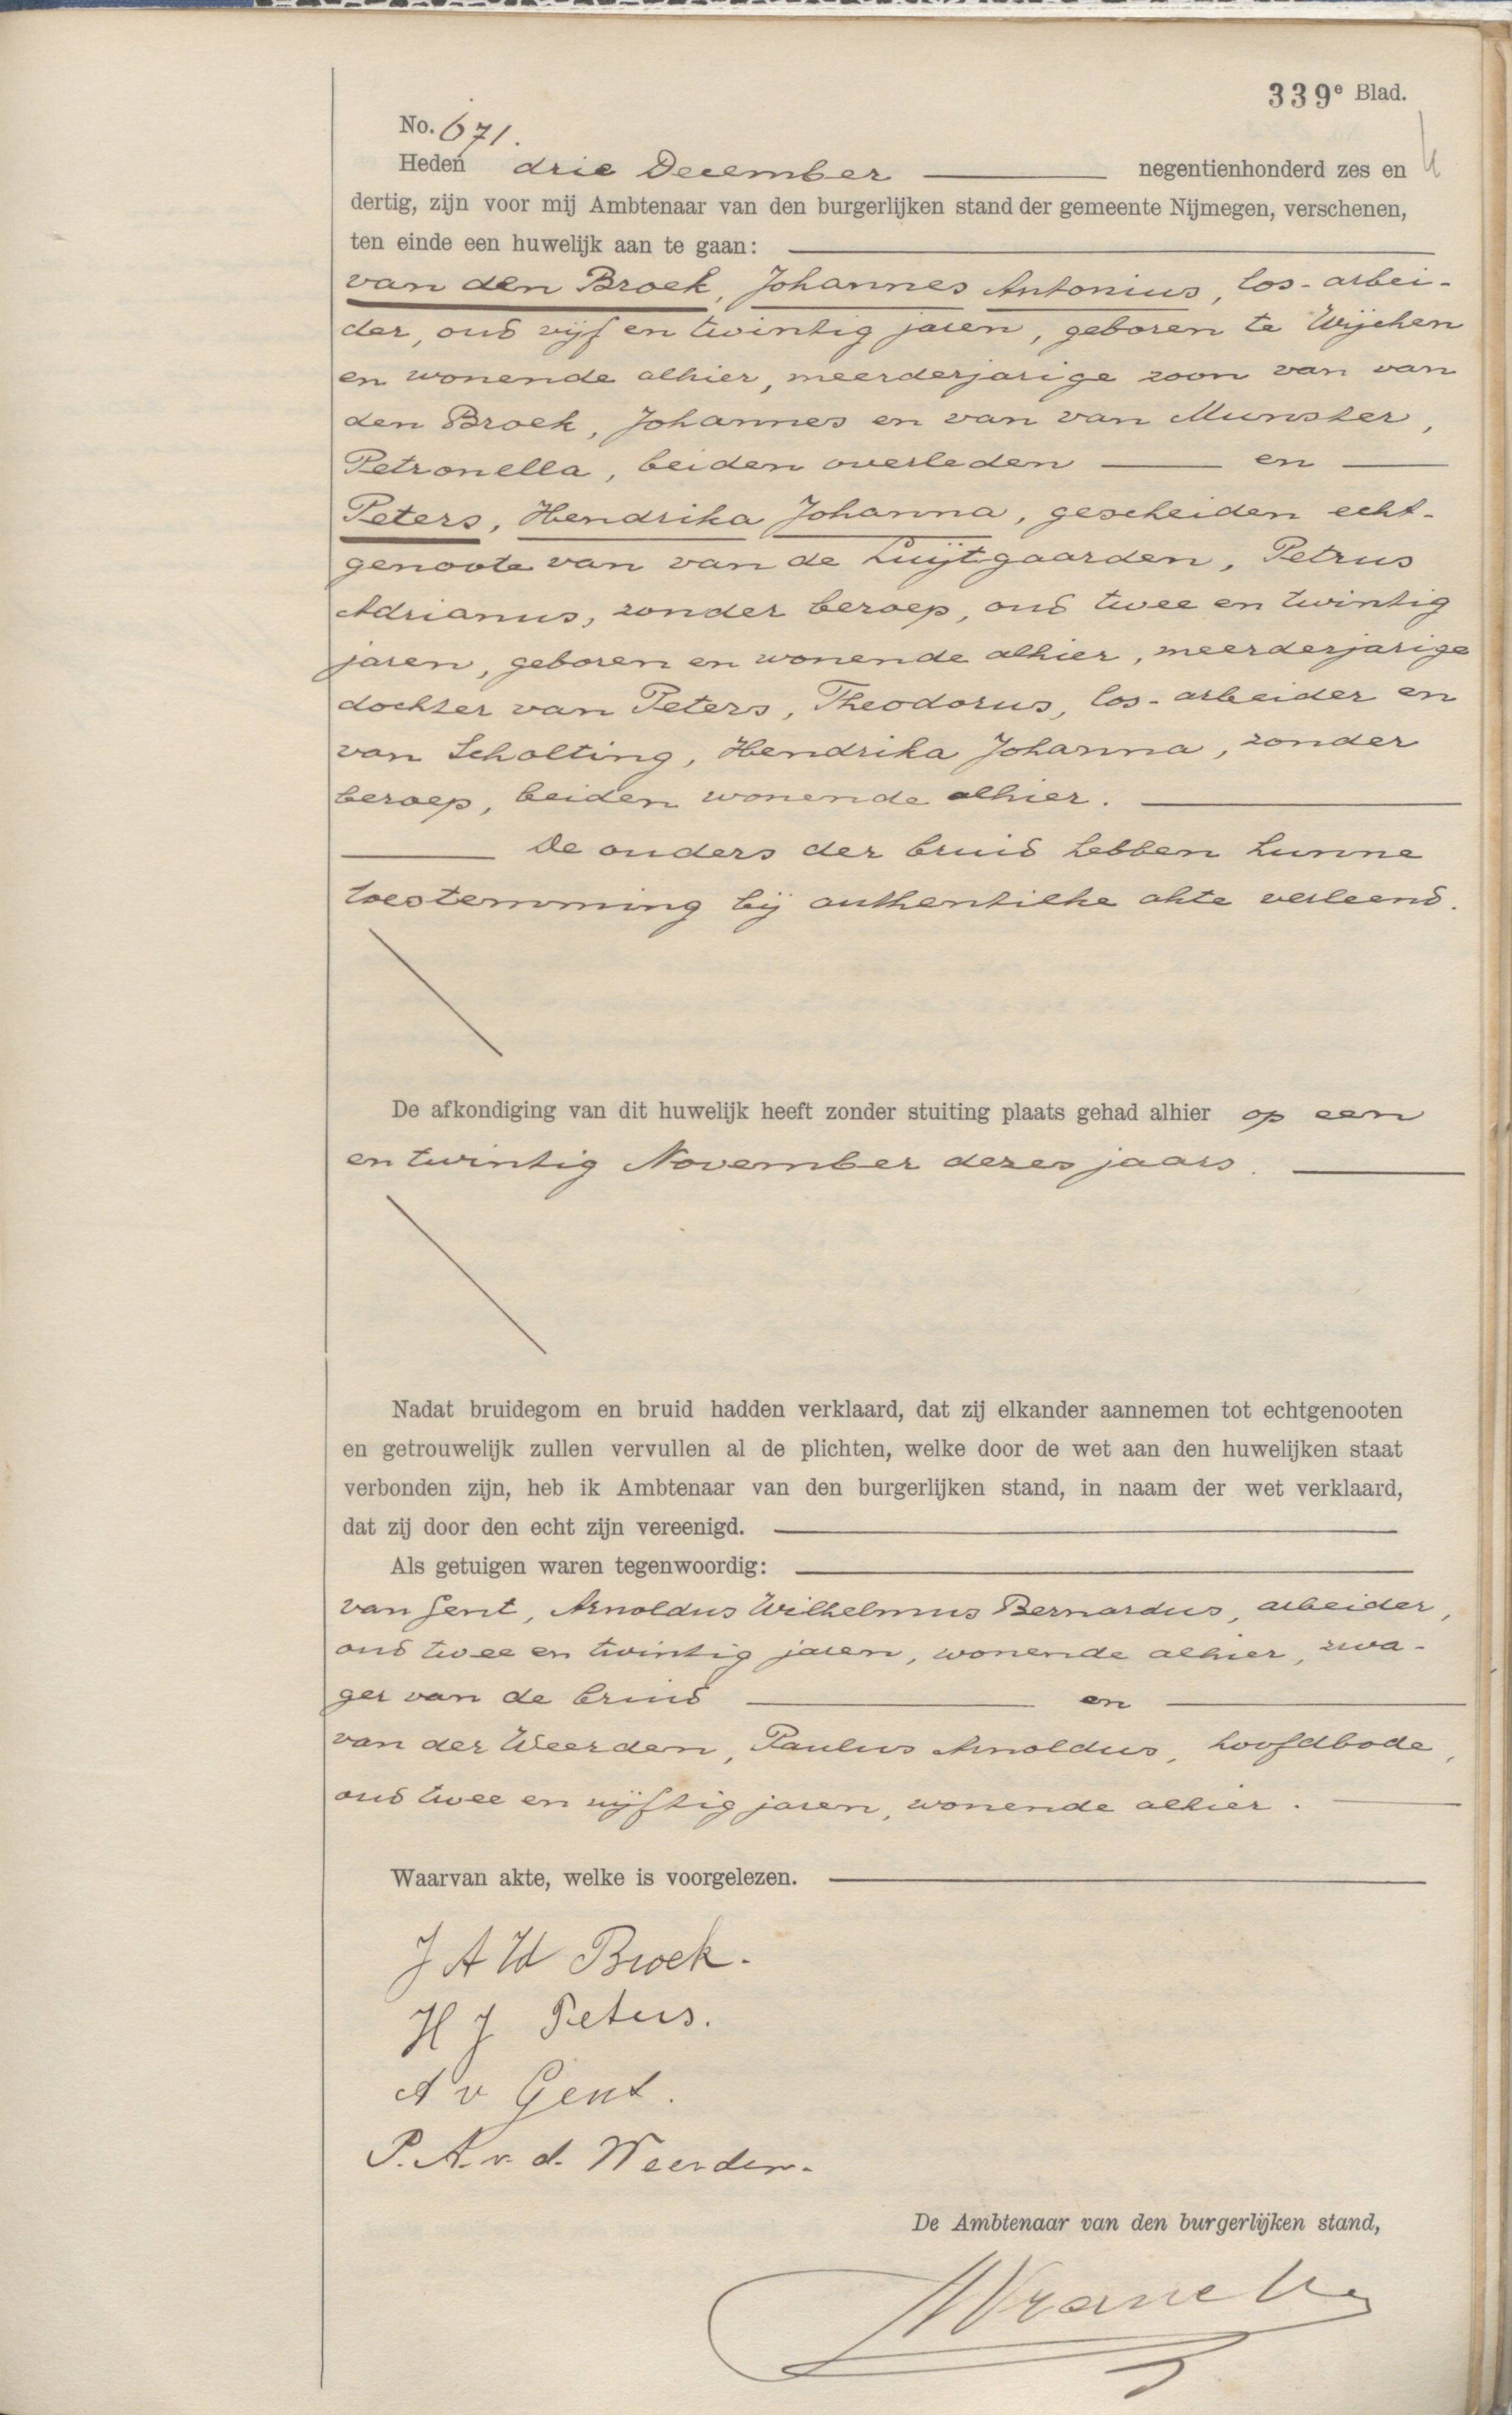 339e Blad.
No. 671.
Heden drie December negentienhonderd zes en
dertig, zijn voor mij Ambtenaar van den burgerlijken stand der gemeente Nijmegen, verschenen,
ten einde een huwelijk aan te gaan:
van den Broek, Johannes Antonius, los-arbei-
der, oud vijf en twintig jaren, geboren te Wijchen
en wonende alhier, meerderjarige zoon van van
den Broek, Johannes en van van Munster,
Petronella, beiden overleden en
Peters, Hendrika Johanna, gescheiden echt-
genoote van van de Luijtgaarden, Petrus
Adrianus, zonder beroep, oud twee en twintig
jaren, geboren en wonende alhier, meerderjarige
dochter van Peters, Theodorus, los-arbeider en
van Scholting, Hendrika Johanna, zonder
beroep, beiden wonende alhier.
De ouders der bruid hebben hunne
toestemming bij authentieke akte verleend.
De afkondiging van dit huwelijk heeft zonder stuiting plaats gehad alhier op een
en twintig November dezes jaars.
Nadat bruidegom en bruid hadden verklaard, dat zij elkander aannemen tot echtgenooten
en getrouwelijk zullen vervullen al de plichten, welke door de wet aan den huwelijken staat
verbonden zijn, heb ik Ambtenaar van den burgerlijken stand, in naam der wet verklaard,
dat zij door den echt zijn vereenigd.
Als getuigen waren tegenwoordig:
van Gent, Arnoldus Wilhelmus Bernardus, arbeider,
oud twee en twintig jaren, wonende alhier, zwa-
ger van de bruid en
van der Weerden, Paulus Arnoldus, hoofdbode,
oud twee en vijftig jaren, wonende alhier.
Waarvan akte, welke is voorgelezen.
J A Vd Broek.
H J Peters.
A v Gent.
P. A. v. d. Weerden.
De Ambtenaar van den burgerlijken stand,